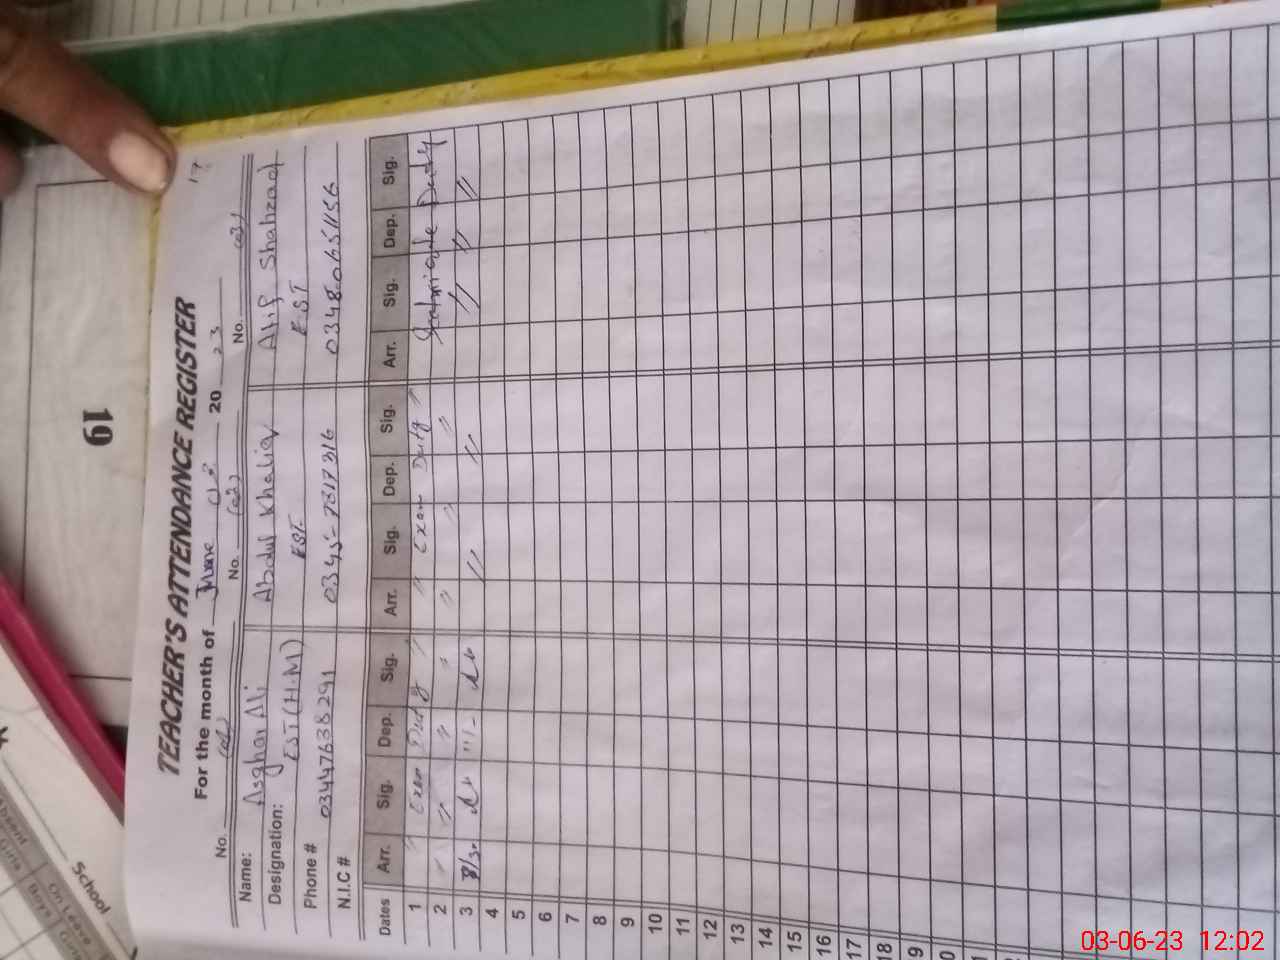 19
School
Absent
Girls
On Leave
Boys
17
TEACHER'S ATTENDANCE REGISTER
For the month of June 20 23
No. No. (02) No. (03)
Name: Asghar Ali Abdul Khaliq Atif Shahzad
Designation: EST (H.M) EST EST
Phone # 03447638291 0345-7317316 03480651156
N.I.C #
Dates Arr. Sig. Dep. Sig. Arr. Sig. Dep. Sig. Arr. Sig. Dep. Sig.
1 " Exam Duty " " Exam Duty "
2 " " " " " " " Duty
3 // // // // //
4
5
6
7
8
9
10
11
12
13
14
15
16
17
18
19
03-06-23 12:02